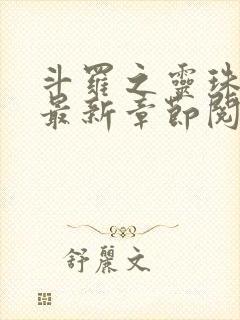 斗羅之靈珠
最新章節閱
舒麗文